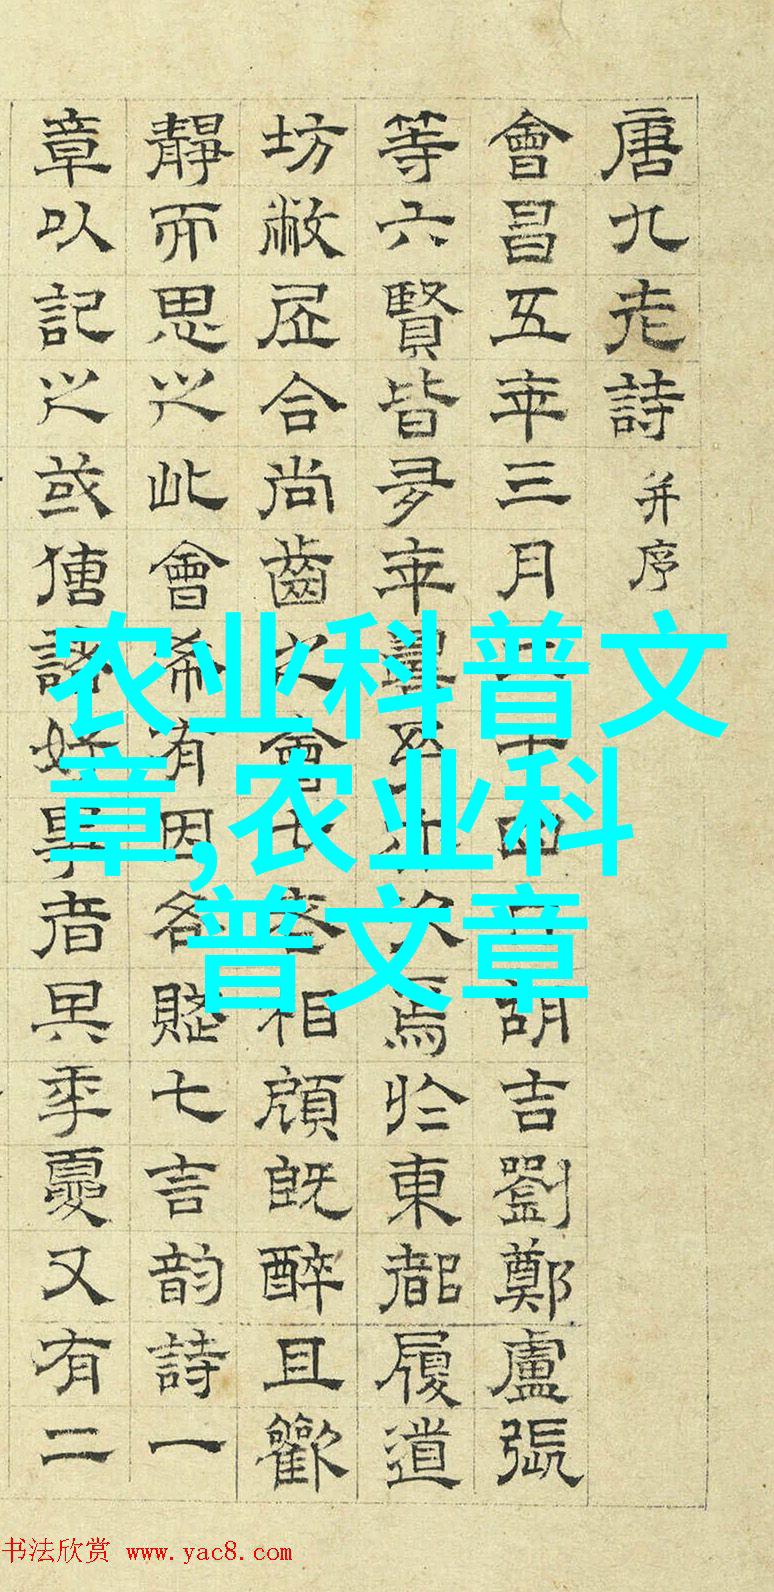 唐九老詩 并序
會昌五年三月二十四日胡吉劉鄭盧張
等六賢皆多年壽予亦次焉於東都履道
坊敝居合尚齒之會七老相顧既醉且歡
靜而思之此會希有因各賦七言韵詩一
章以記之或傳諸好事者其年夏又有二
农业科普文
章,农业科
普文章
书法欣赏 www.yac8.com